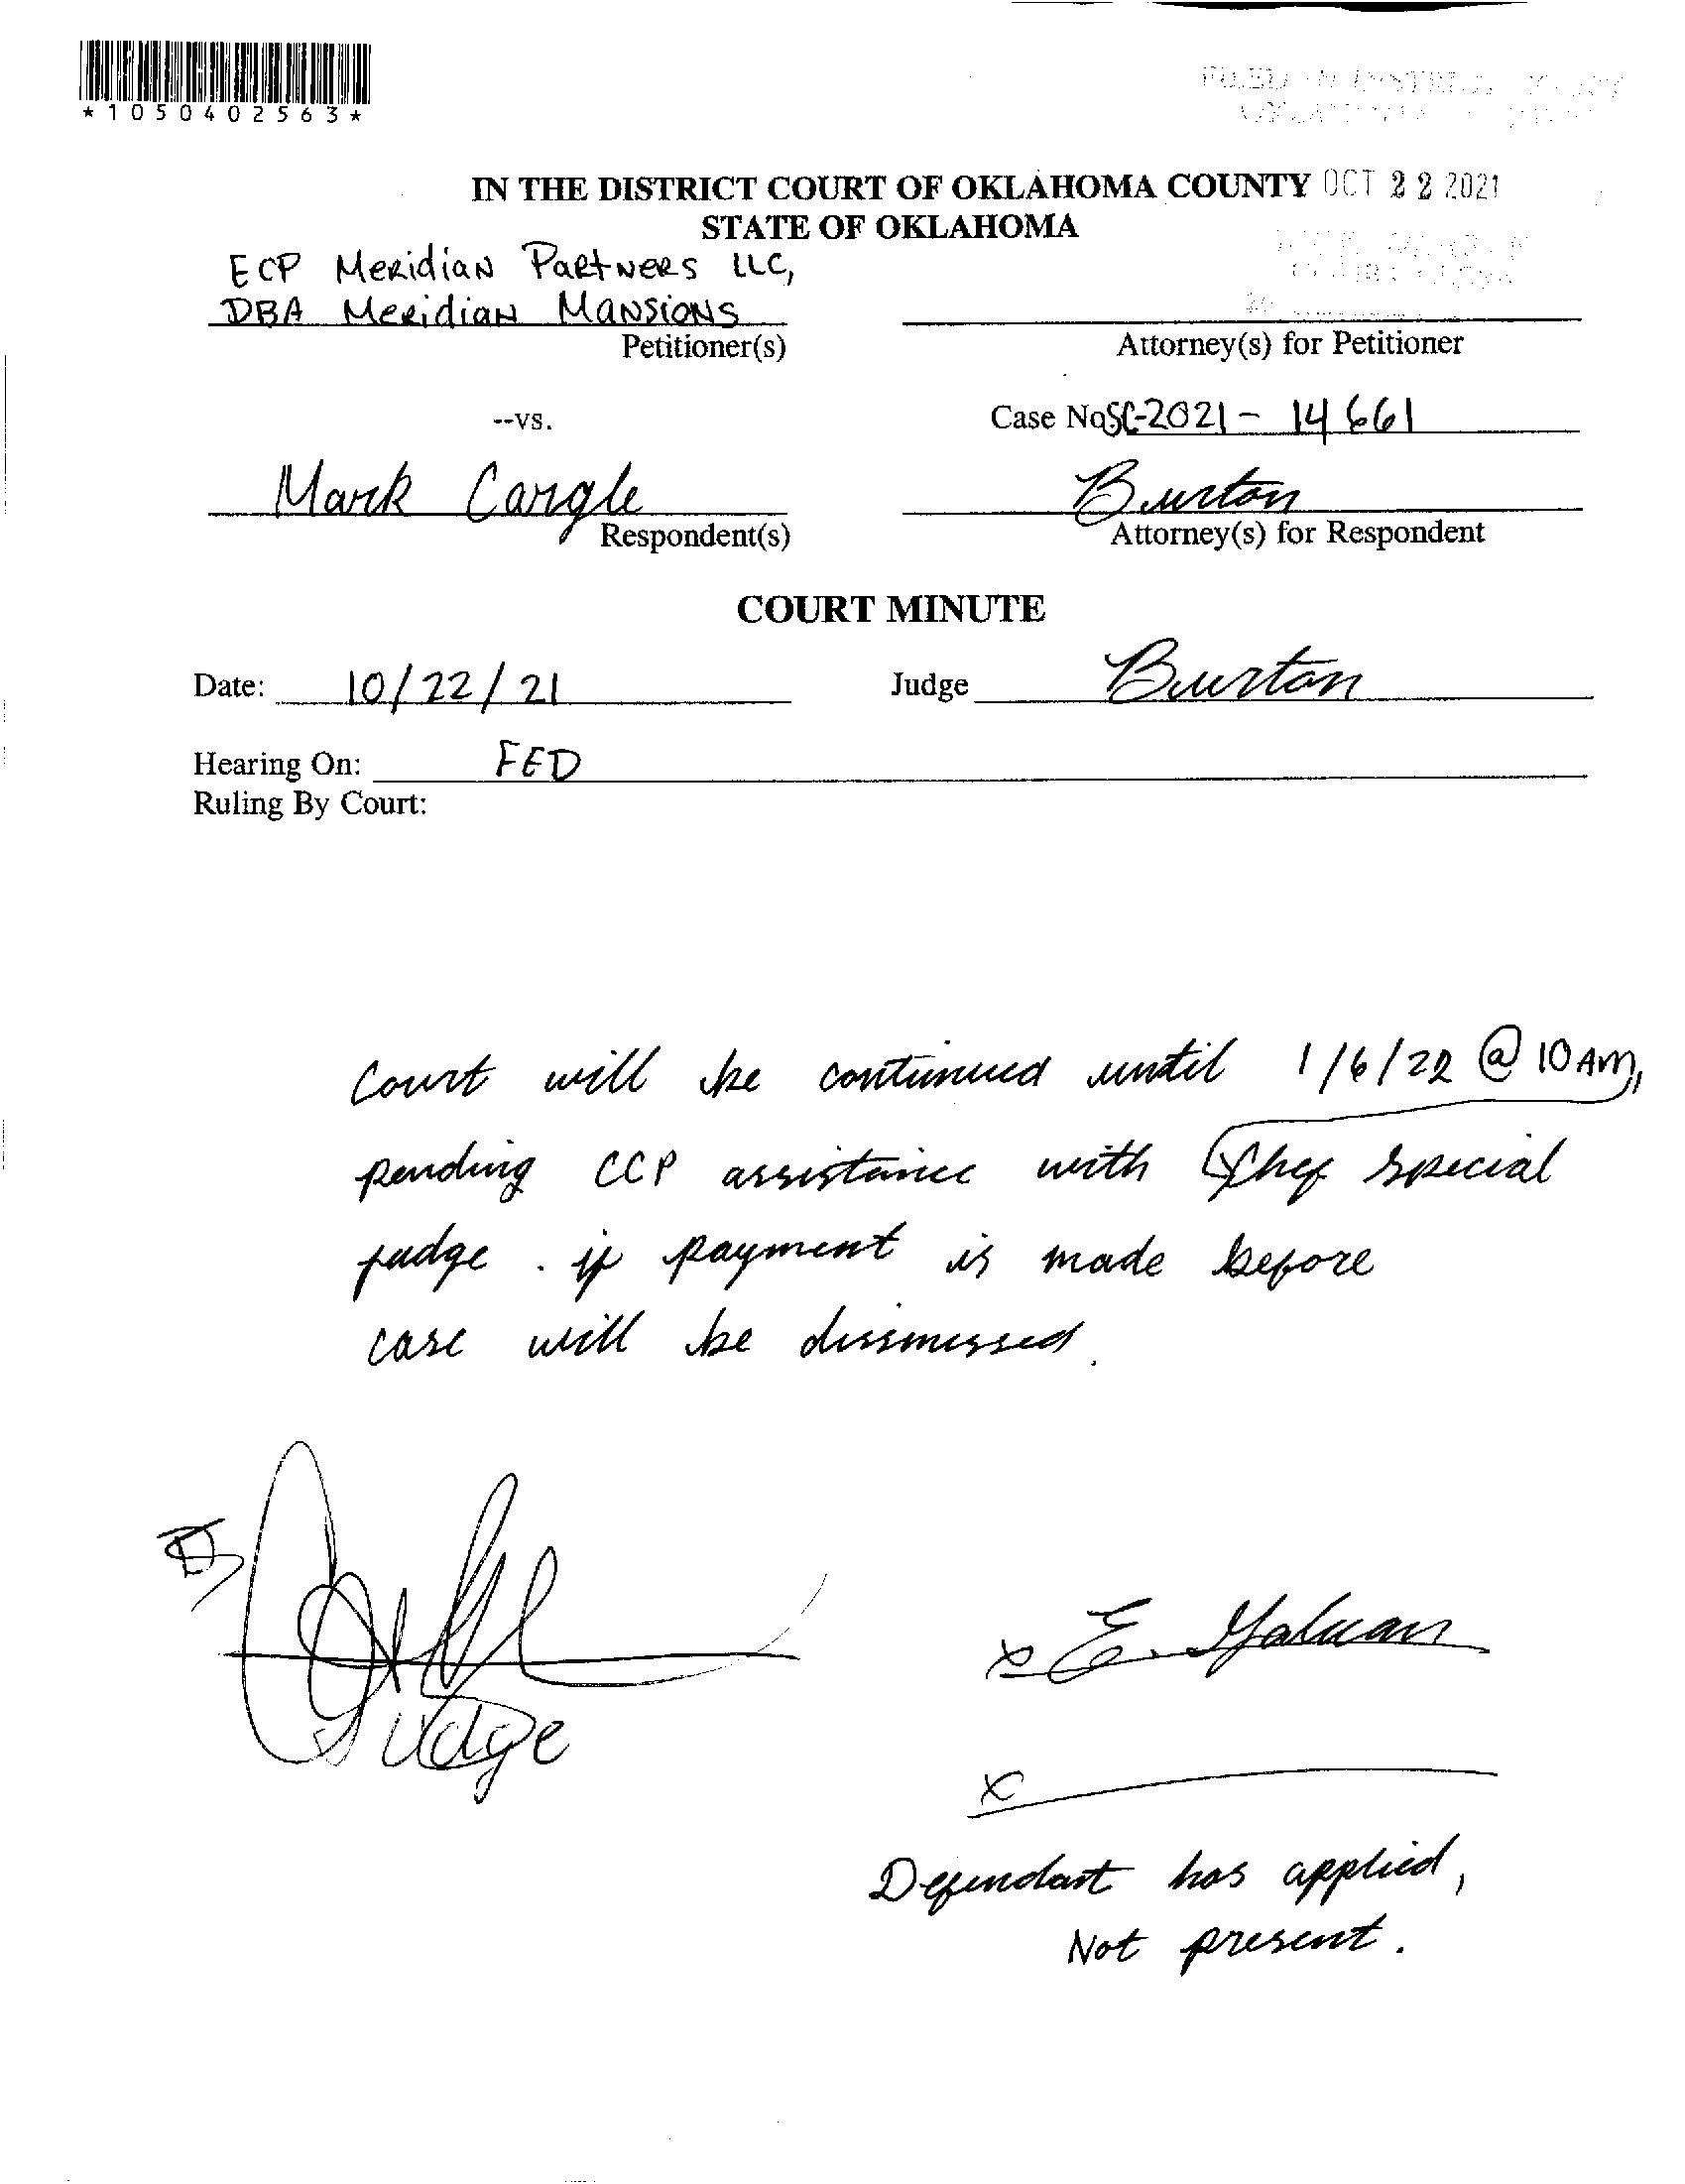 *1050402563*
IN THE DISTRICT COURT OF OKLAHOMA COUNTY OCT 22 2021
STATE OF OKLAHOMA
ECP Meridian Partners LLC,
DBA Meridian Mansions
Petitioner(s)
Attorney(s) for Petitioner
--vs.
Case No SC-2021-14661
Mark Cargle
Respondent(s)
Burton
Attorney(s) for Respondent
COURT MINUTE
Date: 10/22/21
Judge Burton
Hearing On: FED
Ruling By Court:
Court will be continued until 1/6/22 @ 10 AM,
pending CCP assistance with special
judge. if payment is made before
case will be dissmissed.
Judge
x E.
x
Defendant has applied,
Not present.